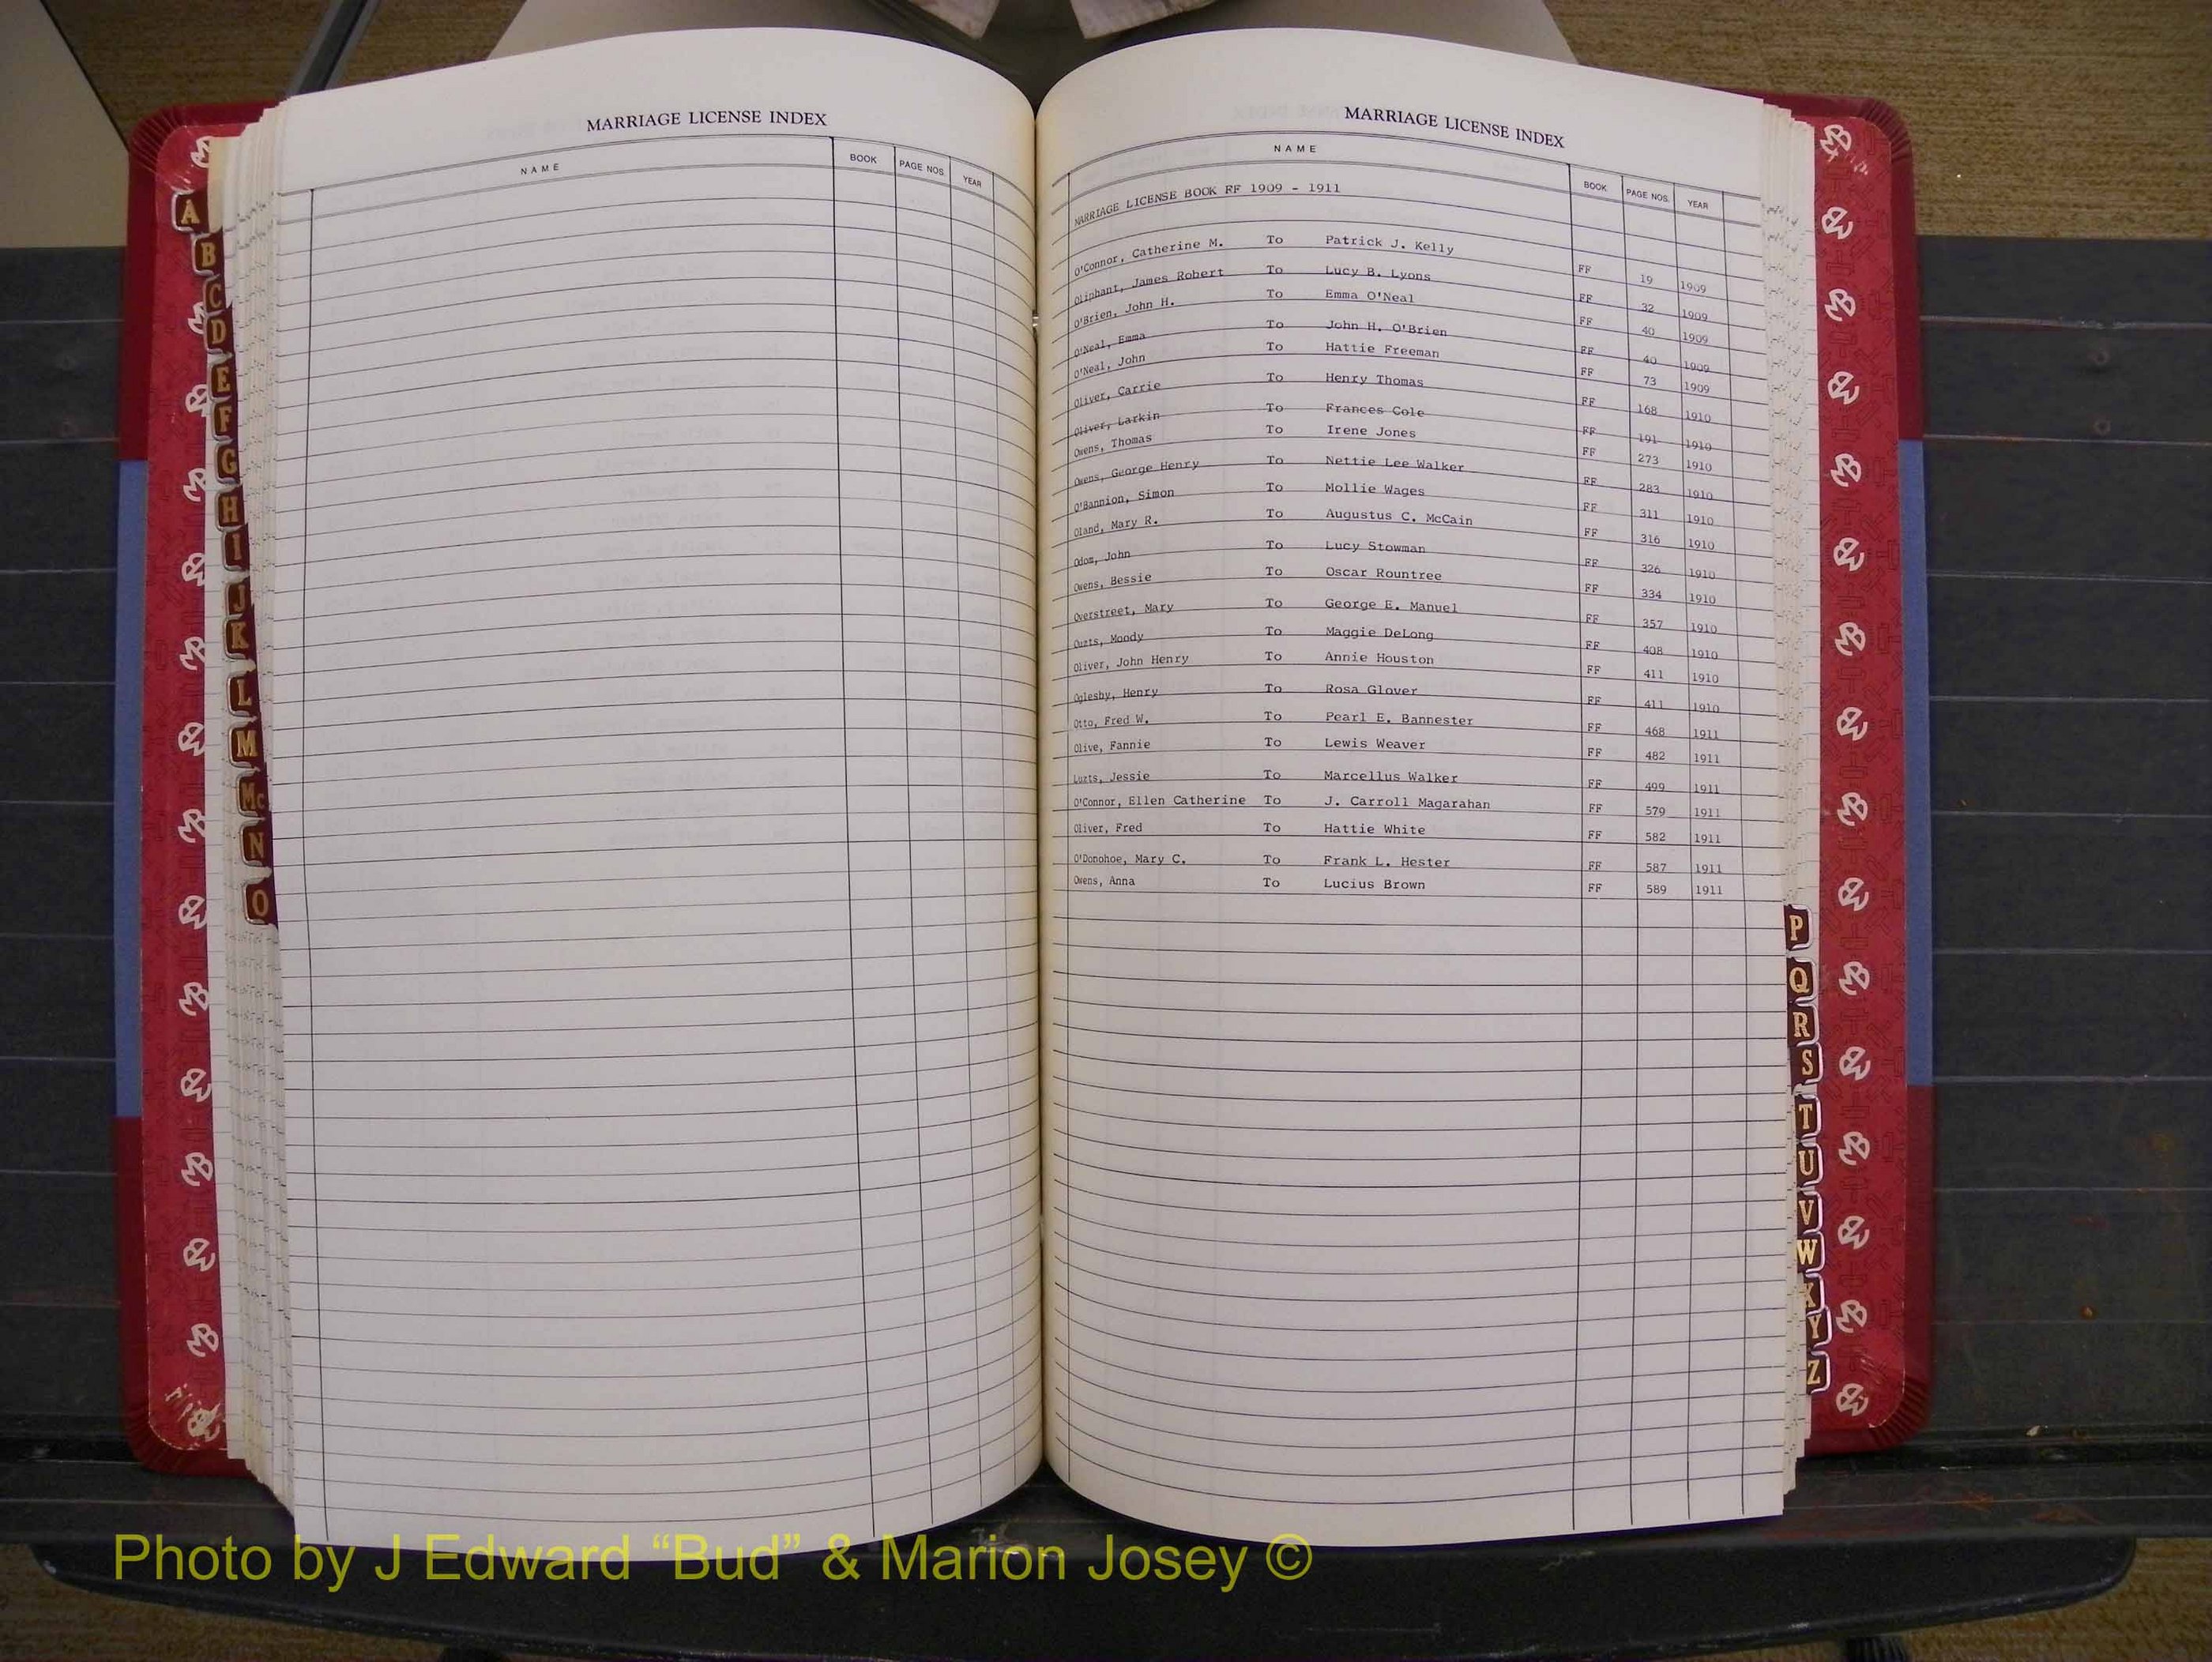 MARRIAGE LICENSE INDEX
NAME BOOK PAGE NOS. YEAR
A
B
C
D
E
F
G
H
I
J
K
L
M
Mc
N
O
MARRIAGE LICENSE INDEX
NAME BOOK PAGE NOS. YEAR
MARRIAGE LICENSE BOOK FF 1909 - 1911
O'Connor, Catherine M. To Patrick J. Kelly FF 19 1909
Oliphant, James Robert To Lucy B. Lyons FF 32 1909
O'Brien, John H. To Emma O'Neal FF 40 1909
O'Neal, Emma To John H. O'Brien FF 40 1909
O'Neal, John To Hattie Freeman FF 73 1909
Oliver, Carrie To Henry Thomas FF 168 1910
Oliver, Larkin To Frances Cole FF 191 1910
Owens, Thomas To Irene Jones FF 273 1910
Owens, George Henry To Nettie Lee Walker FF 283 1910
O'Bannion, Simon To Mollie Wages FF 311 1910
Oland, Mary R. To Augustus C. McCain FF 316 1910
Odom, John To Lucy Stowman FF 326 1910
Owens, Bessie To Oscar Rountree FF 334 1910
Overstreet, Mary To George E. Manuel FF 357 1910
Ouzts, Moody To Maggie DeLong FF 408 1910
Oliver, John Henry To Annie Houston FF 411 1910
Oglesby, Henry To Rosa Glover FF 411 1910
Otto, Fred W. To Pearl E. Bannester FF 468 1911
Olive, Fannie To Lewis Weaver FF 482 1911
Jessie To Marcellus Walker FF 499 1911
O'Connor, Ellen Catherine To J. Carroll Magarahan FF 579 1911
Oliver, Fred To Hattie White FF 582 1911
O'Donohoe, Mary C. To Frank L. Hester FF 587 1911
Owens, Anna To Lucius Brown FF 589 1911
P
Q
R
S
T
U
V
W
X
Y
Z
Photo by J Edward “Bud” & Marion Josey ©